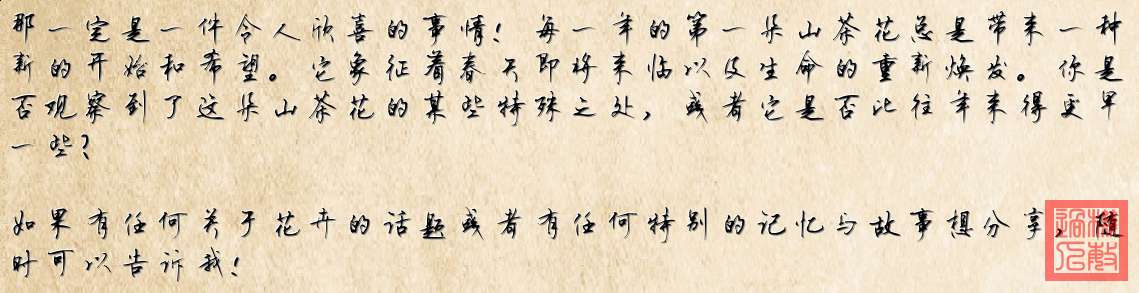 那一定是一件令人欣喜的事情！每一年的第一朵山茶花总是带来一种
新的开始和希望。它象征着春天即将来临以及生命的重新焕发。你是
否观察到了这朵山茶花的某些特殊之处，或者它是否比往年来得更早
一些？
如果有任何关于花卉的话题或者有任何特别的记忆与故事想分享，随
时可以告诉我！